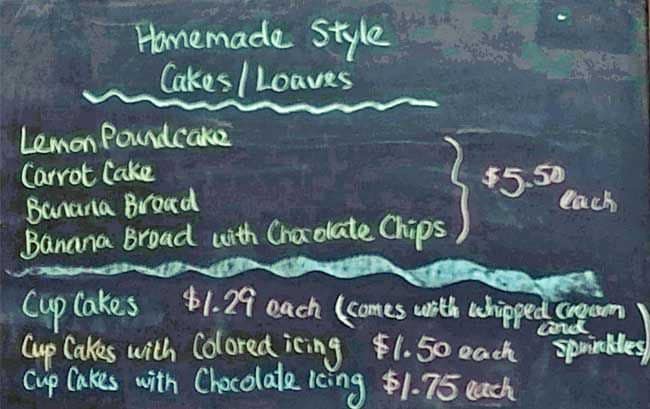 Homemade Style
Cakes/Loaves
Lemon Poundcake
Carrot Cake
Banana Bread
Banana Bread with Chocolate Chips
$5.50
each
Cup Cakes $1.29 each (comes with whipped cream
and
sprinkles)
Cup Cakes with Colored icing $1.50 each
Cup Cakes with Chocolate Icing $1.75 each